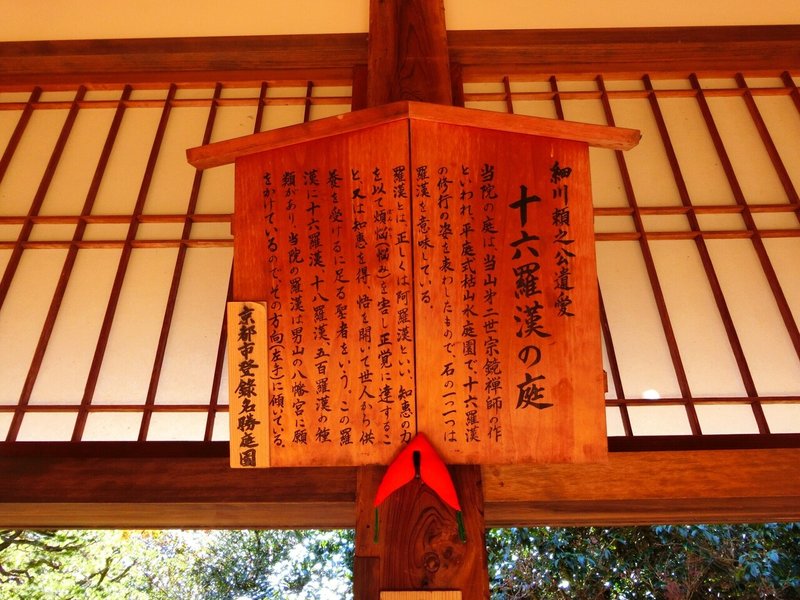 細川頼之公遺愛
十六羅漢の庭
当院の庭は、当山第二世宗鏡禅師の作
といわれ、平庭式枯山水庭園で、十六羅漢
の修行の姿を表わしたもので、石の一つ一つは
羅漢を意味している。
羅漢とは、正しくは阿羅漢といい、知恵の力
を以て煩悩(悩み)を害し正覚に達するこ
と又は知恵を得、悟を開いて世人から供
養を受けるに足る聖者をいう。この羅
漢に十六羅漢、十八羅漢、五百羅漢の種
類があり、当院の羅漢は男山の八幡宮に願
をかけているのでその方向(左手)に傾いている。
京都市登録名勝庭園